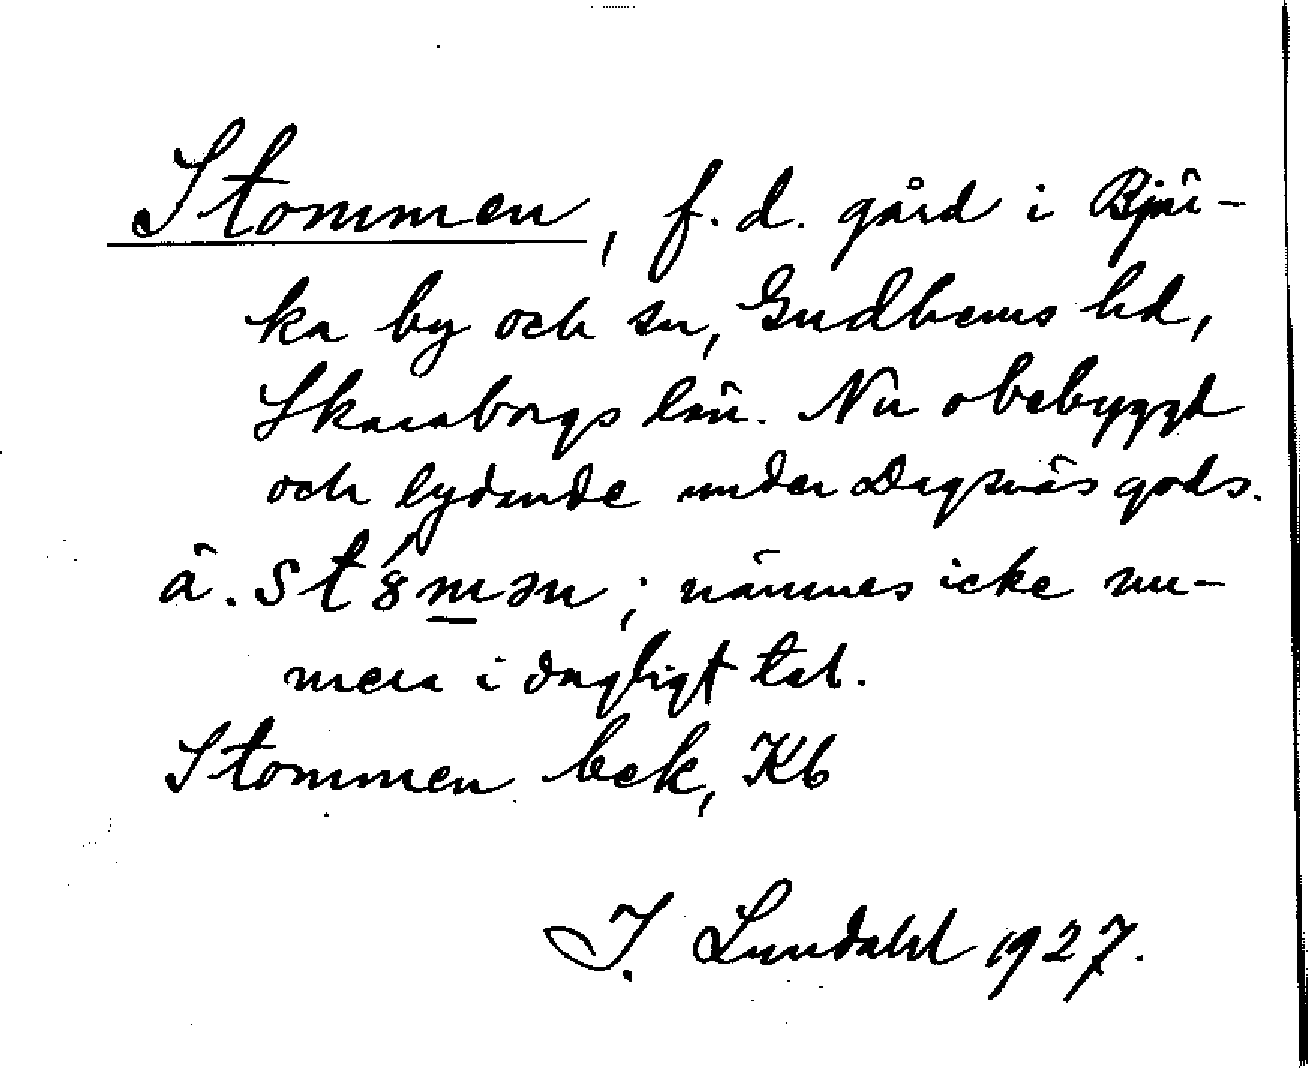 Stommen, f. d. gård i Bjär-
ka by och sn, Gudhems hd,
Skaraborgs län. Nu obebyggt
och lydande under Dagsnäs gods.
ä. st8́mən; nämnes icke nu-
mera i dagligt tal.
Stommen bek, Kb
I. Lundahl 1927.